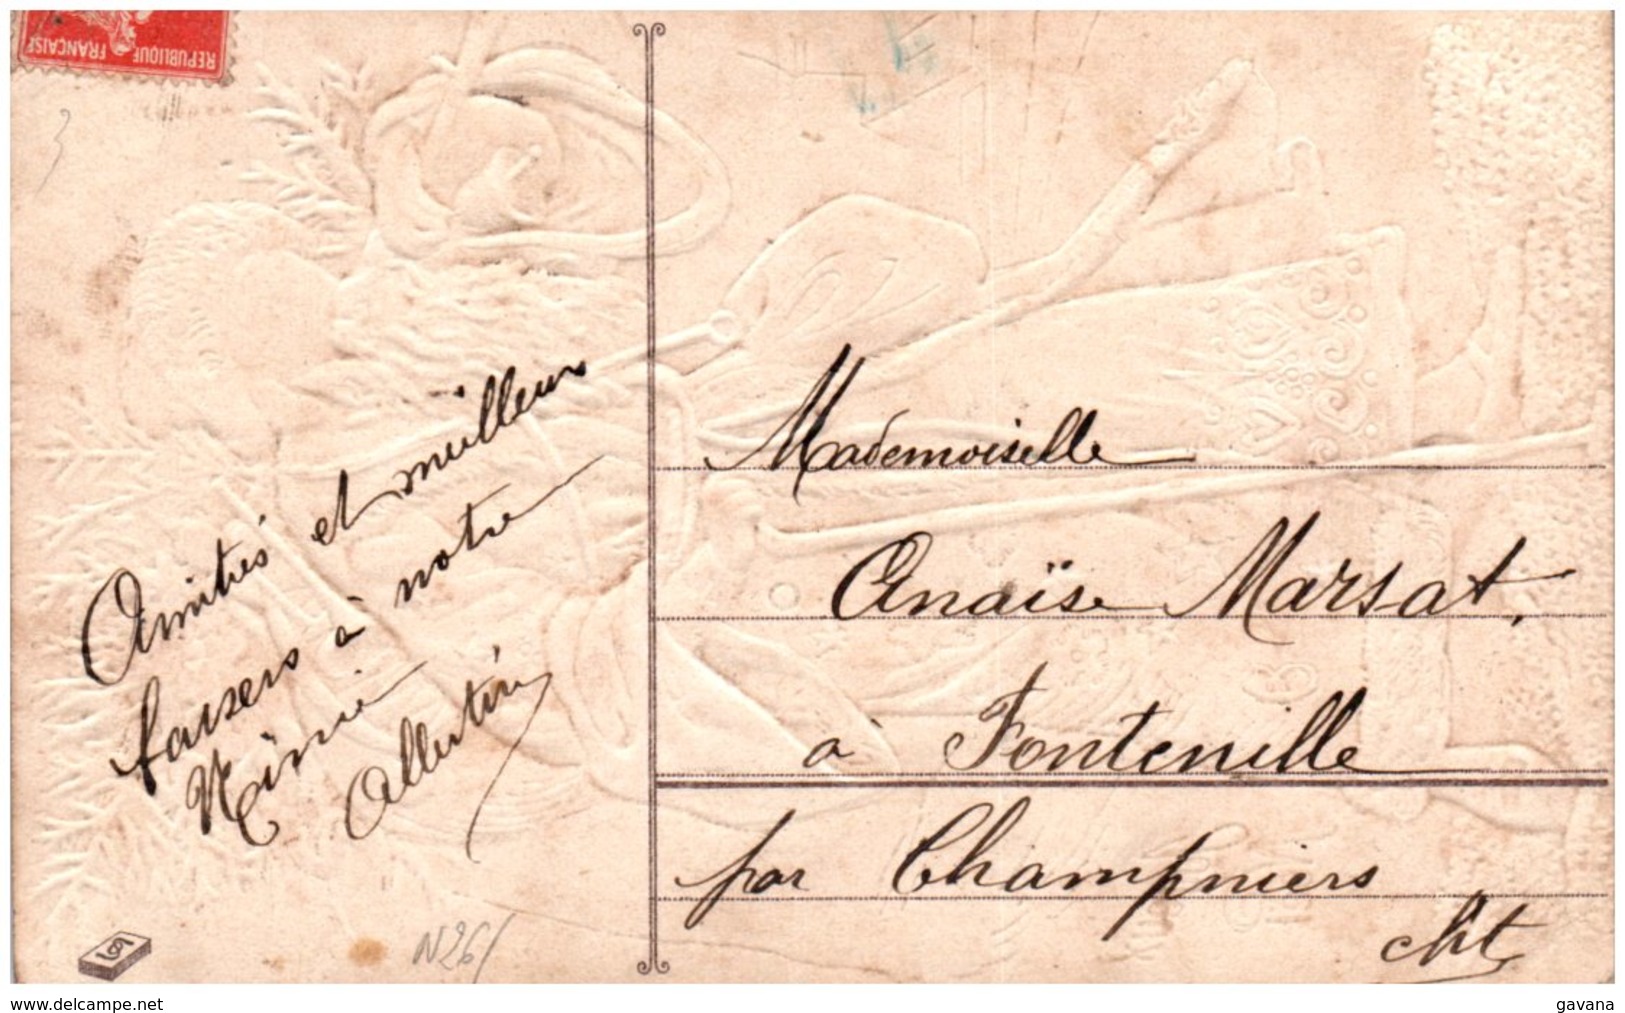 REPUBLIQUE FRANÇAISE
3
Amitiés et meilleurs
baisers à notre
Ninie
Albertine
Mademoiselle
Anaïse Marsat,
à Fontenille
par Champniers
Cht
N26/
delcampe.net
gavana